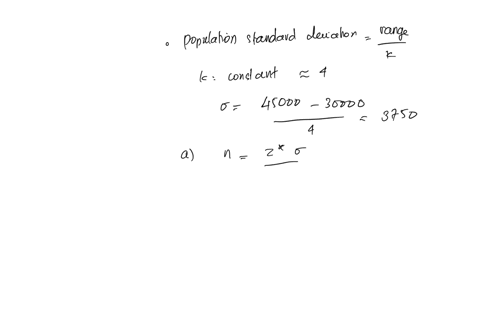 • population standard deviation = range / k
k: constant ≈ 4
σ = 45000 - 30000 / 4 = 3750
a) n = z* σ